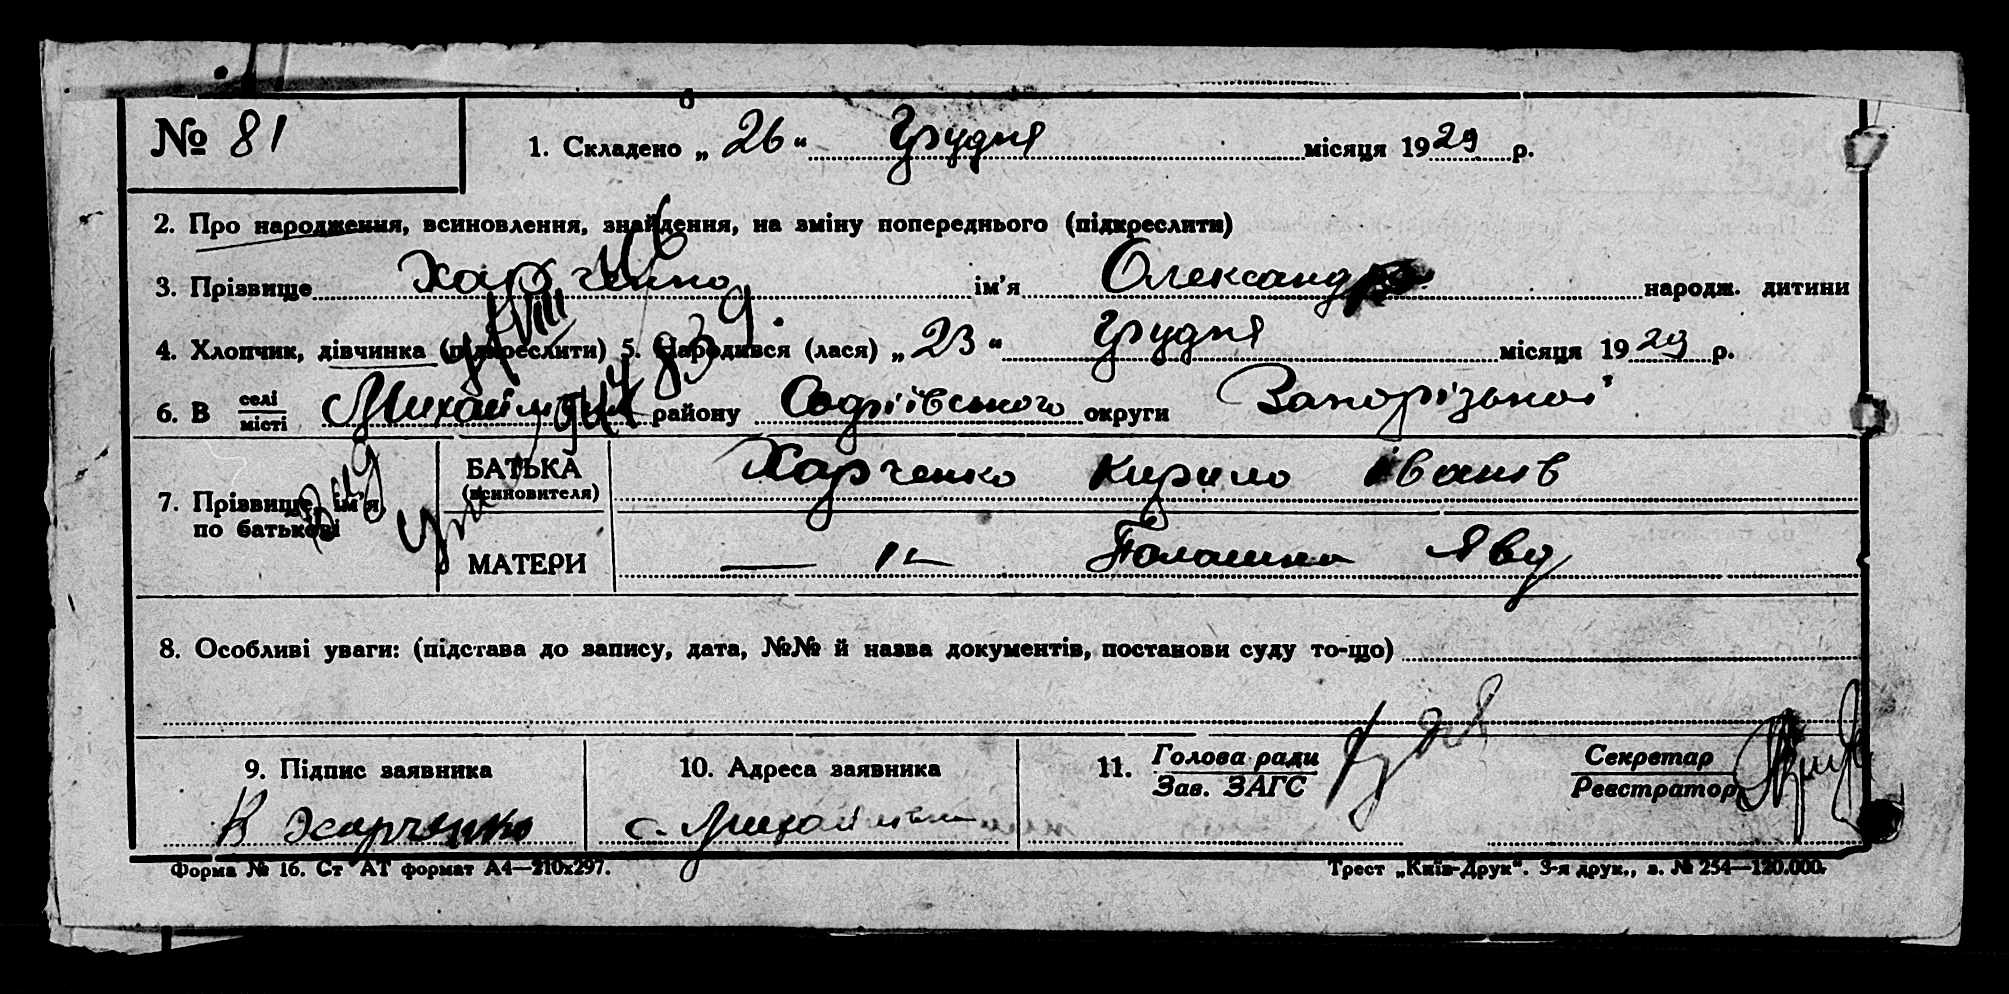 № 81
1. Складено „ 26 “ Грудня місяця 1929 р.
2. Про народження, всиновлення, знайдення, на зміну попереднього (підкреслити)
3. Прізвище Харченко ім’я Олександра народж. дитини
4. Хлопчик, дівчинка (підкреслити) 5. Народився (лася) „ 23 “ Грудня місяця 1929 р.
6. В селі місті району Софіївського округи Запорізької
7. Прізвище, ім’я, по батькові
БАТЬКА (всиновителя) Харченко Кирило Іванів
МАТЕРИ — 1 — Палашка
8. Особливі уваги: (підстава до запису, дата, №№ й назва документів, постанови суду то-що)
9. Підпис заявника
10. Адреса заявника
11. Голова ради Зав. ЗАГС
Секретар Реєстратор
К Харченко
с. Михайлівка
Форма № 16. Ст АТ формат А4—210х297.
Трест „Київ-Друк“. 3-я друк., з. № 254—120.000.